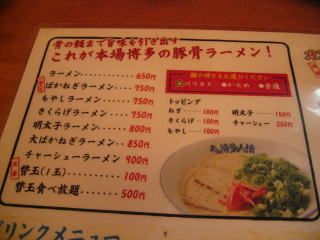 骨の髄まで旨味を引き出す
これが本場博多の豚骨ラーメン!
ラーメン 650円
ばかねぎラーメン 750円
もやしラーメン 750円
きくらげラーメン 750円
明太子ラーメン 800円
大ばかねぎラーメン 850円
チャーシューラーメン 900円
替玉(1玉) 100円
替玉食べ放題 500円
麺の硬さをお選びください
バリカタ ●かため ●普通
トッピング
ねぎ 180円
きくらげ 100円
もやし 100円
明太子 150円
チャーシュー 250円
博多人情
ドリンクメニュー